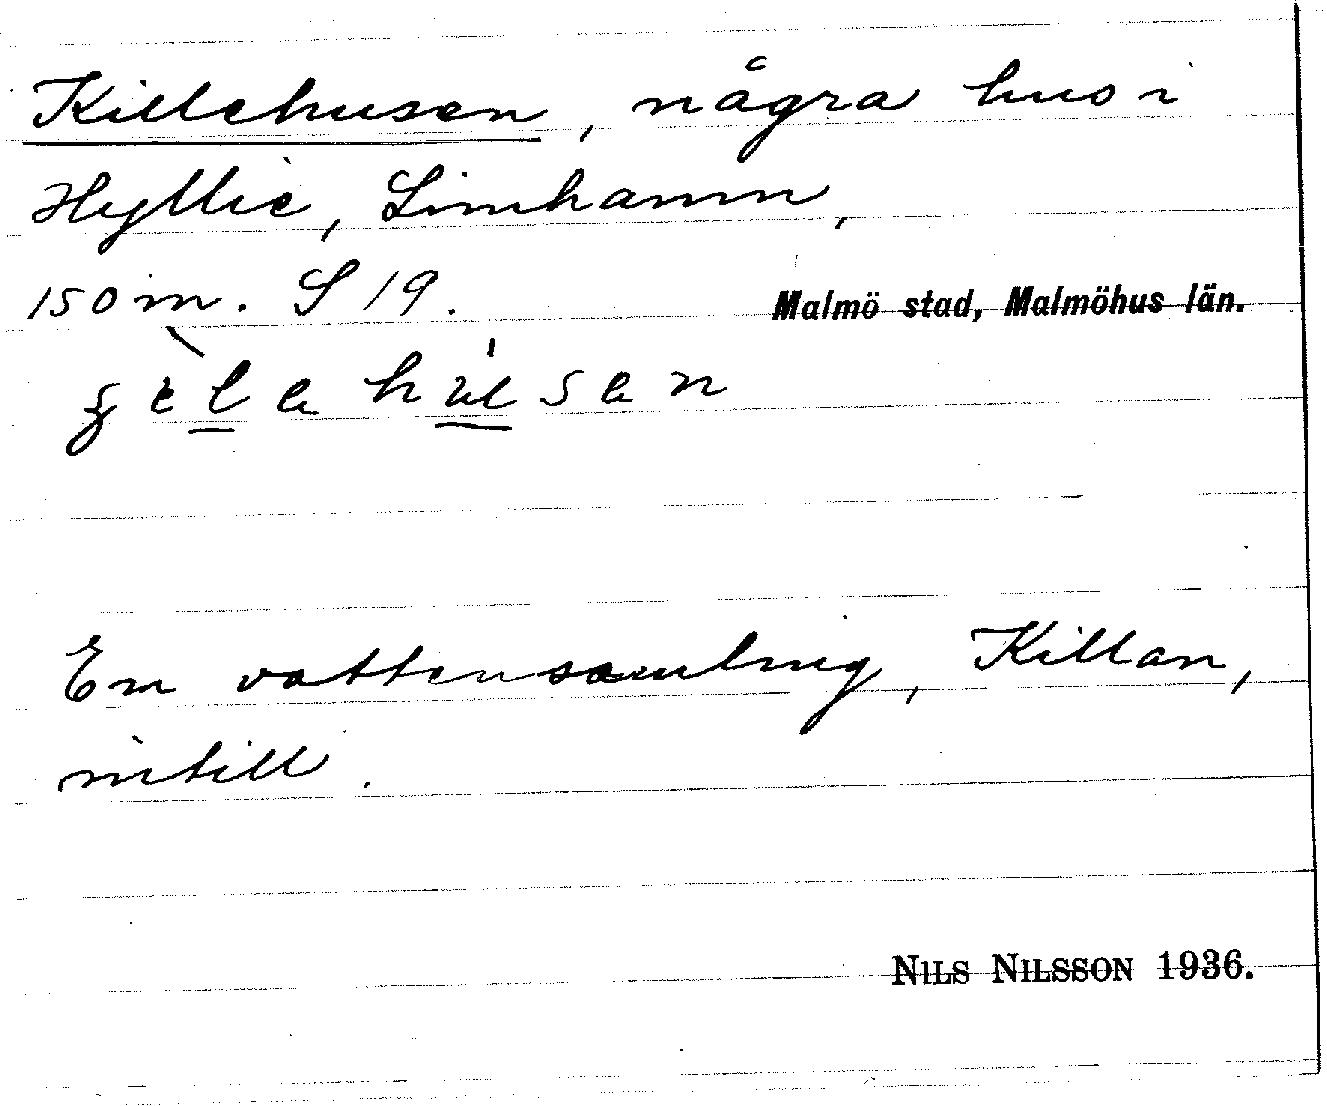 Killehusen, några hus i
Hyllie, Limhamn,
150 m. S 19.
Malmö stad, Malmöhus län.
En vattensamling, Killan,
intill.
NILS NILSSON 1936.